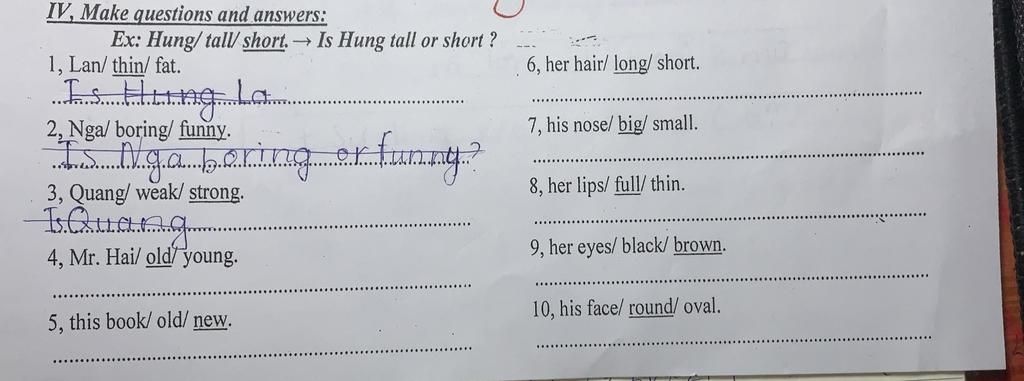 IV, Make questions and answers:
Ex: Hung/ tall/ short. → Is Hung tall or short ?
1, Lan/ thin/ fat.
Is Hung La
2, Nga/ boring/ funny.
Is Nga boring or funny?
3, Quang/ weak/ strong.
Is Quang
4, Mr. Hai/ old/ young.
5, this book/ old/ new.
6, her hair/ long/ short.
7, his nose/ big/ small.
8, her lips/ full/ thin.
9, her eyes/ black/ brown.
10, his face/ round/ oval.